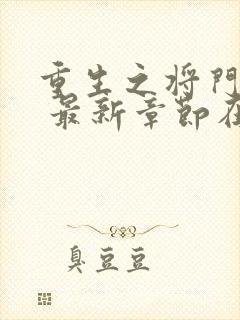 重生之将門
最新章節在
臭豆豆